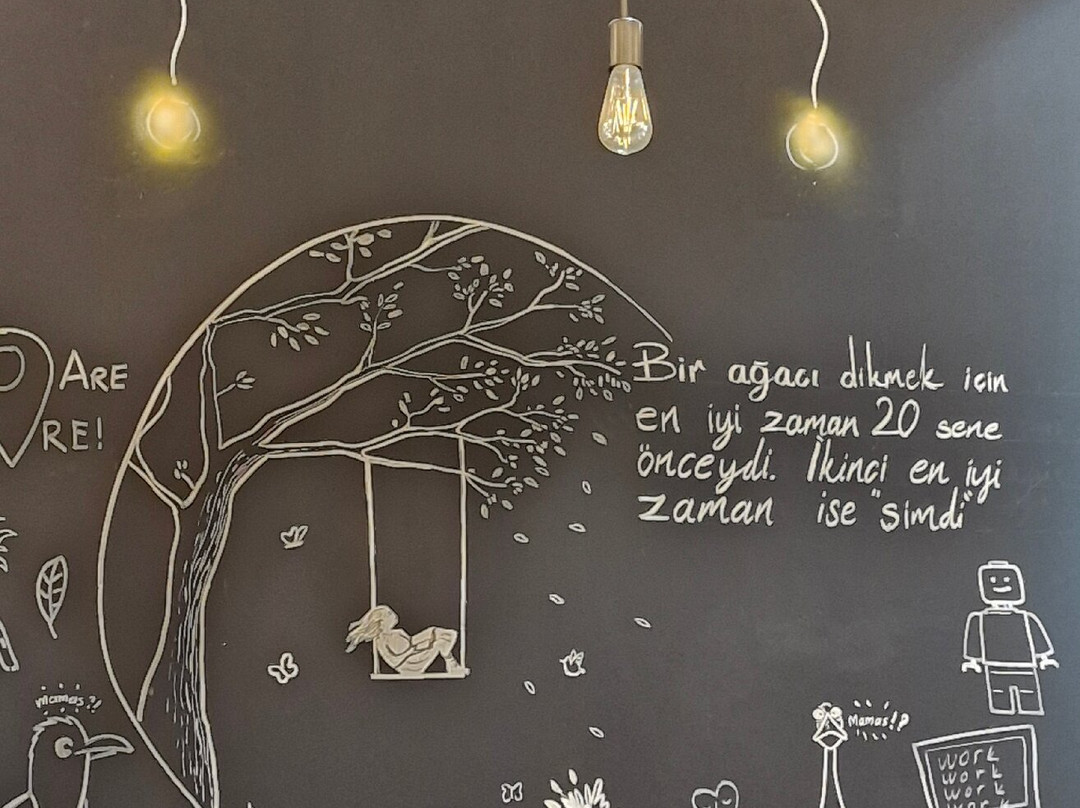 ARE
RE!
Bir ağacı dikmek için
en iyi zaman 20 sene
önceydi. İkinci en iyi
zaman ise "şimdi"
mamas?!
Mamas!?
WORK
WORK
WORK